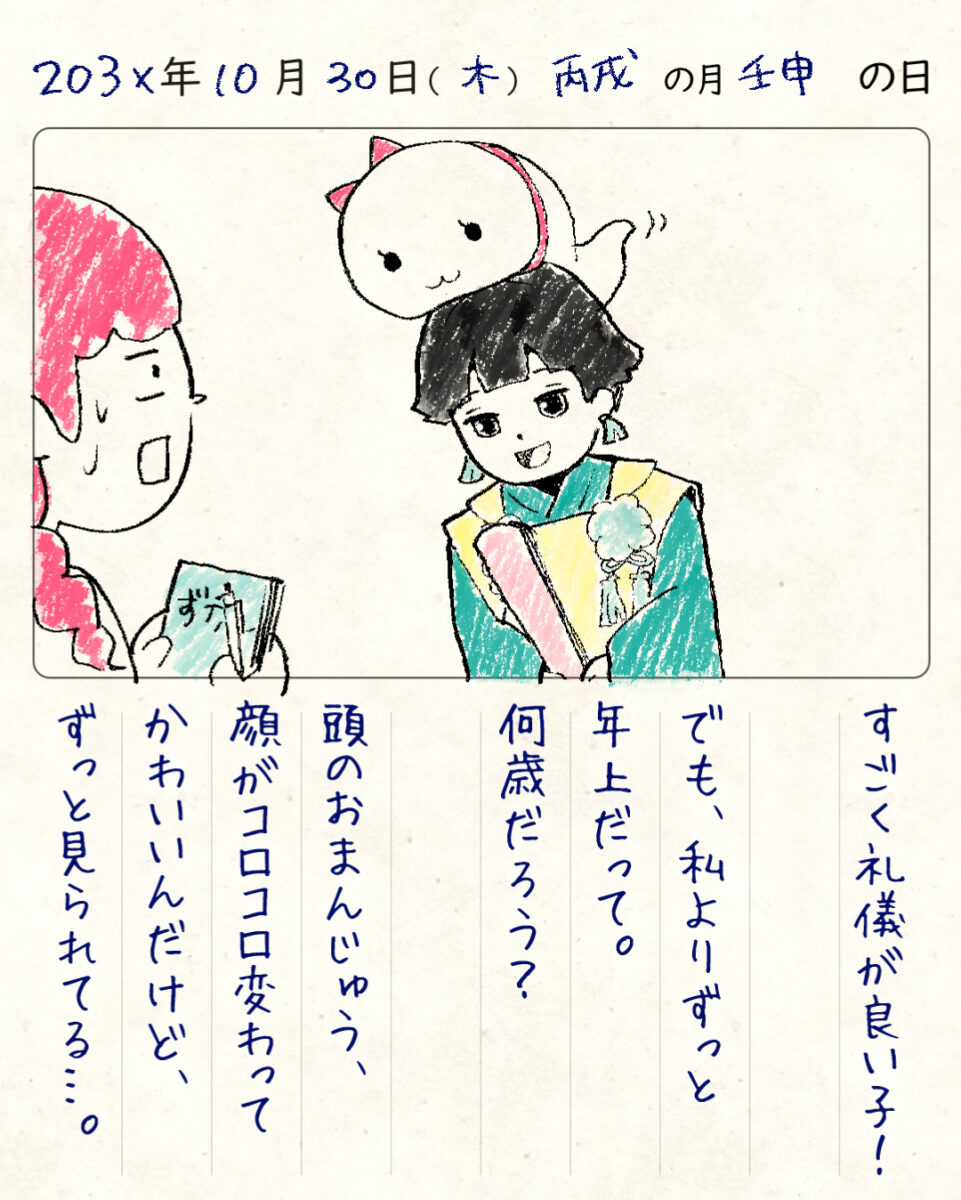 203x年10月30日(木) 丙戌の月壬申の日
すごく礼儀が良い子!
でも、私よりずっと
年上だって。
何歳だろう?
頭のおまんじゅう、
顔がコロコロ変わって
かわいいんだけど、
ずっと見られてる…。